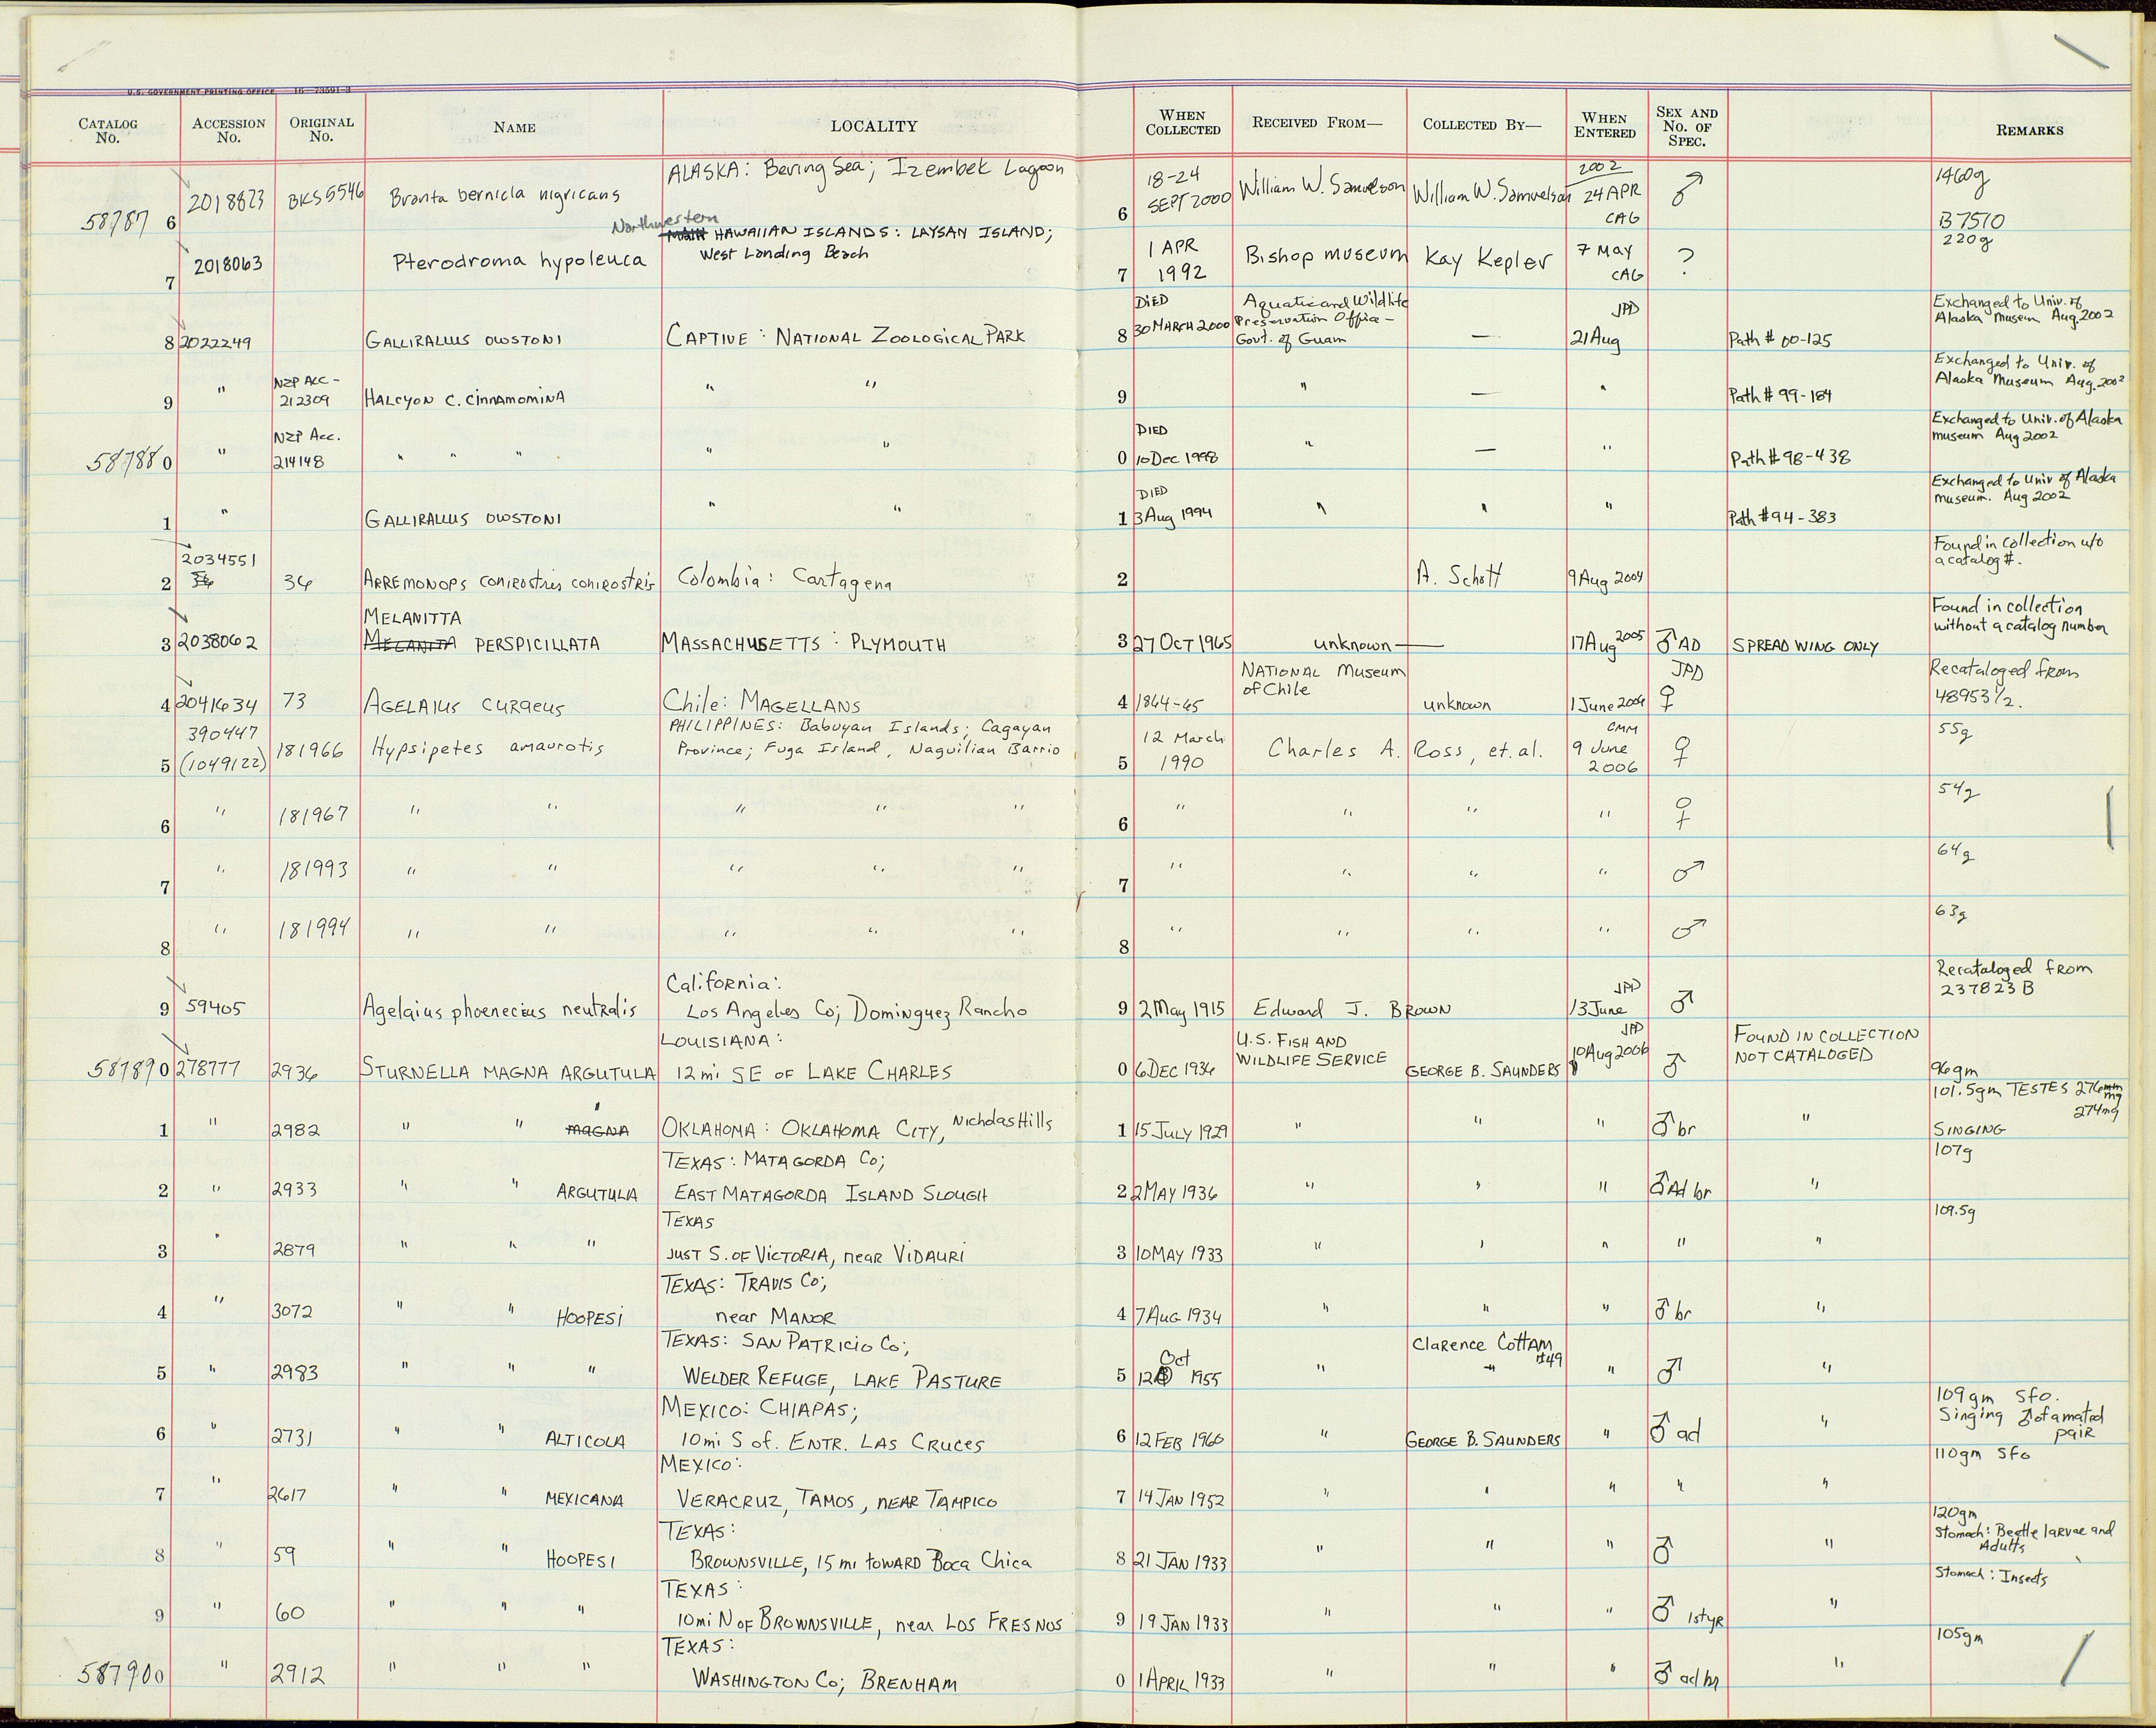 U.S. GOVERNMENT PRINTING OFFICE 16—73591-3
CATALOG No. ACCESSION No. ORIGINAL No. NAME LOCALITY WHEN COLLECTED RECEIVED FROM— COLLECTED BY— WHEN ENTERED SEX AND No. OF SPEC. REMARKS
58787 6 2018823 BKS5546 Branta bernicla nigricans ALASKA: Bering Sea; Izembek Lagoon 6 18-24 SEPT 2000 William W. Samuelson William W. Samuelson 2002 24 APR CAG ♂ 1460g B7570
7 2018063 Pterodroma hypoleuca Northwestern HAWAIIAN ISLANDS: LAYSAN ISLAND; West Landing Beach 7 1 APR 1992 Bishop museum Kay Kepler 7 May CAG ? 220g
8 2022249 GALLIRALLUS OWSTONI CAPTIVE: NATIONAL ZOOLOGICAL PARK 8 DIED 30 MARCH 2000 Aquatic and Wildlife Preservation Office - Govt. of Guam — JPD 21 Aug Path # 00-125 Exchanged to Univ. of Alaska Museum Aug. 2002
9 " NZP Acc - 212309 HALCYON C. CINNAMOMINA " " 9 " — " Path # 99-184 Exchanged to Univ. of Alaska Museum Aug. 2002
58788 0 " NZP Acc. 214148 " " " " " 0 DIED 10 Dec 1998 " — " Path # 98-438 Exchanged to Univ. of Alaska museum Aug 2002
1 " GALLIRALLUS OWSTONI " " 1 DIED 3 Aug 1994 " " " Path # 94-383 Exchanged to Univ of Alaska museum. Aug 2002
2 2034551 34 ARREMONOPS CONIROSTRIS CONIROSTRIS Colombia: Cartagena 2 A. Schott 9 Aug 2004 Found in collection w/o a catalog #.
3 2038062 MELANITTA MELANITA PERSPICILLATA MASSACHUSETTS: PLYMOUTH 3 27 OCT 1965 unknown — 17 Aug 2005 ♂ AD SPREAD WING ONLY Found in collection without a catalog number
4 2041634 73 AGELAIUS CURAEUS Chile: MAGELLANS 4 1864-65 NATIONAL Museum of Chile unknown 1 June 2006 JPD ♀ Recataloged from 48953 1/2.
5 390447 (1049122) 181966 Hypsipetes amaurotis PHILIPPINES: Babuyan Islands; Cagayan Province; Fuga Island, Naguilian Barrio 5 12 March 1990 Charles A. Ross, et. al. CMM 9 June 2006 ♀ 55g
6 " 181967 " " " " " 6 " " " " ♀ 54g
7 " 181993 " " " " " 7 " " " " ♂ 64g
8 " 181994 " " " " " 8 " " " " ♂ 63g
9 59405 Agelaius phoenecius neutralis California: Los Angeles Co; Dominguez Rancho 9 2 May 1915 Edward J. BROWN JPD 13 June ♂ Recataloged from 237823 B
58789 0 278777 2936 STURNELLA MAGNA ARGUTULA LOUISIANA: 12 mi SE OF LAKE CHARLES 0 6 DEC 1936 U.S. FISH AND WILDLIFE SERVICE GEORGE B. SAUNDERS JPD 10 Aug 2006 ♂ FOUND IN COLLECTION NOT CATALOGED 96gm
1 " 2982 " " MAGNA OKLAHOMA: OKLAHOMA CITY, Nicholas Hills 1 15 JULY 1929 " " " ♂ br " 101.5gm TESTES 276mg 274mg SINGING
2 " 2933 " " ARGUTULA TEXAS: MATAGORDA Co; EAST MATAGORDA ISLAND SLOUGH 2 2 MAY 1936 " " " ♂ Ad br " 107g
3 " 2879 " " " TEXAS JUST S. OF VICTORIA, near VIDAURI 3 10 MAY 1933 " " " " " 109.5g
4 " 3072 " " HOOPESI TEXAS: TRAVIS Co; near MANOR 4 7 AUG 1934 " " " ♂ br "
5 " 2983 " " " TEXAS: SAN PATRICIO Co; WELDER REFUGE, LAKE PASTURE 5 12 Oct 1955 " Clarence COTTAM #49 " ♂ "
6 " 2731 " " ALTICOLA MEXICO: CHIAPAS; 10 mi S of. ENTR. LAS CRUCES 6 12 FEB 1960 " GEORGE B. SAUNDERS " ♂ ad " 109gm Sfo. Singing ♂ of a mated pair
7 " 2617 " " MEXICANA MEXICO: VERACRUZ, TAMOS, NEAR TAMPICO 7 14 JAN 1952 " " " " " 110gm Sfo
8 " 59 " " HOOPESI TEXAS: BROWNSVILLE, 15 mi TOWARD Boca Chica 8 21 JAN 1933 " " " ♂ " 120gm Stomach: Beetle larvae and Adults
9 " 60 " " " TEXAS: 10 mi N OF BROWNSVILLE, near LOS FRESNOS 9 19 JAN 1933 " " " ♂ 1st yr " Stomach: Insects
58790 0 " 2912 " " " TEXAS: WASHINGTON Co; BRENHAM 0 1 APRIL 1933 " " " ♂ ad br " 105gm